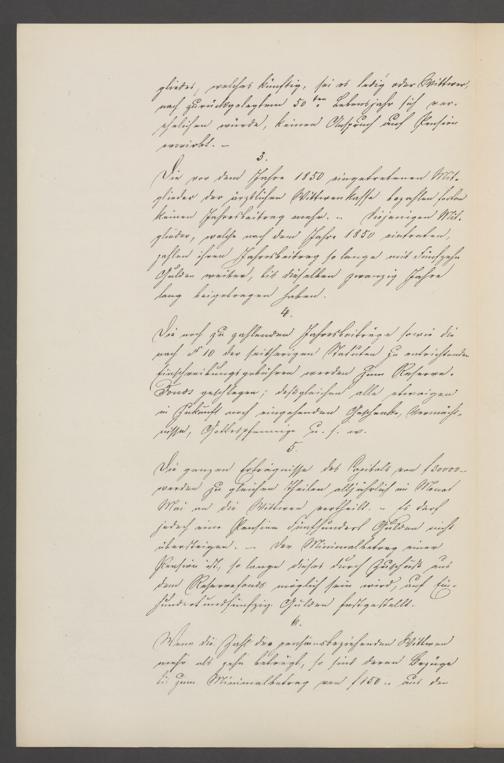 gliedes, welches künftig, sei es ledig oder Wittwer,
nach zurückgelegtem 50ten Lebensjahr sich ver-
ehelichen würde, keinen Anspruch auf Pension
erwirbt. –
3.
Die vor dem Jahre 1850 eingetretenen Mit-
glieder der ärztlichen Wittwenkasse bezahlen
keinen Jahresbeitrag mehr. – Diejenigen Mit-
glieder, welche nach dem Jahre 1850 eintraten,
zahlen ihren Jahresbeitrag so lange mit Fünfzehn
Gulden weiter, bis dieselben zwanzig Jahre
lang beigetragen haben.
4.
Die noch zu zahlenden Jahresbeiträge sowie die
nach § 10 der seitherigen Statuten zu entrichtenden
Einschreibungsgebühren werden zum Reserve-
Fonds geschlagen; desgleichen alle etwaigen
in Zukunft noch eingehenden Geschenke, Vermächt-
nisse, Gottespfennige u. s. w.
5.
Die ganzen Erträgnisse des Capitals von
werden zu gleichen Theilen alljährlich im Monat
Mai an die Wittwen vertheilt. – Es darf
jedoch eine Pension Fünfhundert Gulden nicht
übersteigen. – Der Minimalbetrag einer
Pension ist, so lange dieses durch Zuschuß aus
dem Reservefonds möglich sein wird, auf Ein-
hundertundfünfzig Gulden festgestellt.
6.
Wenn die Zahl der pensionsbeziehenden Wittwen
mehr als zehn beträgt, so sind deren Bezüge
bis zum Minimalbetrag von f 150 .. aus dem